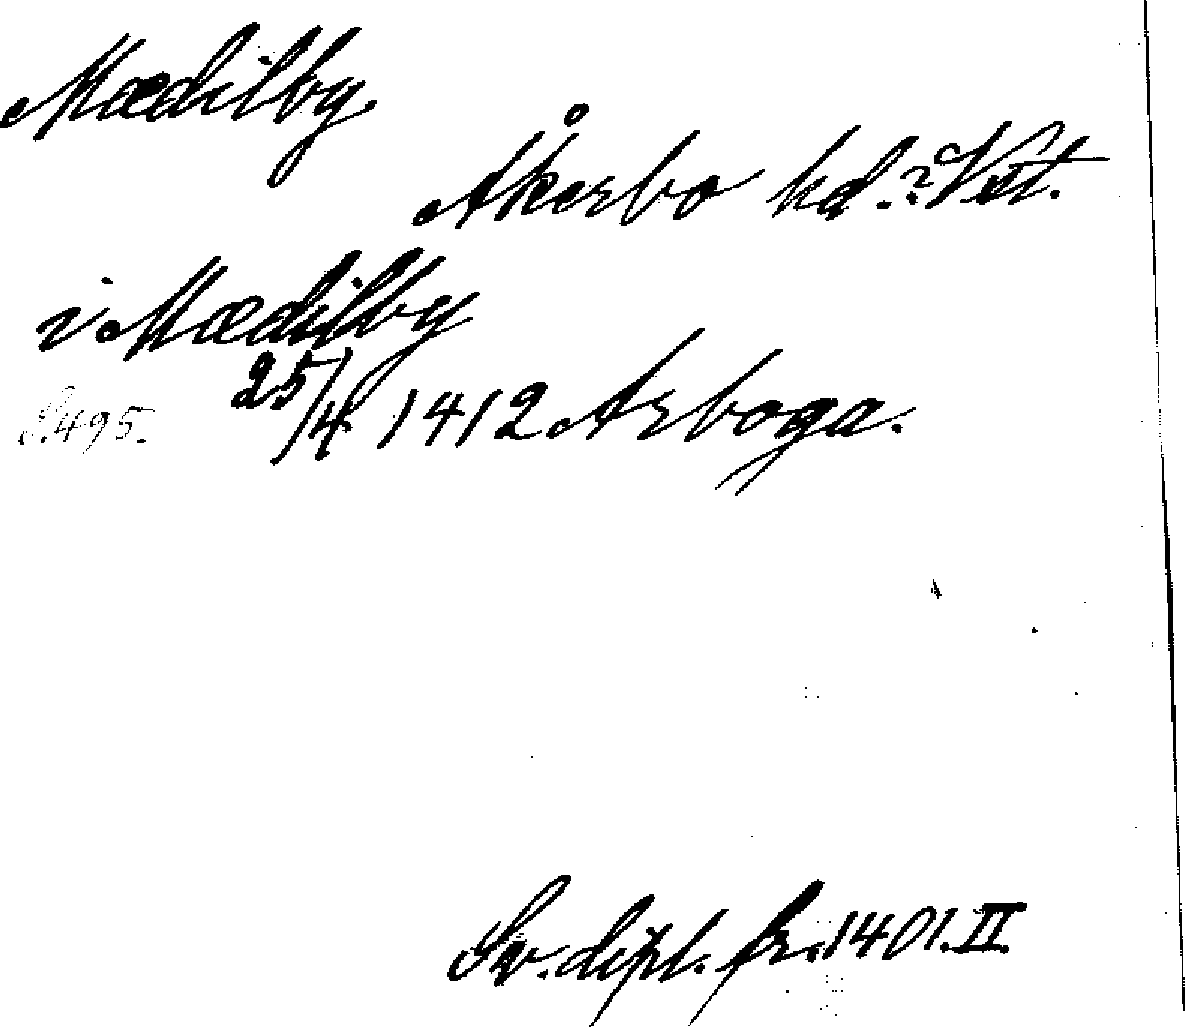 Mædilby
Åkerbo hd.? Vstm.
i Mædilby
25/4 1412 Arboga.
S. 495.
Sv. dipl. fr. 1401. II